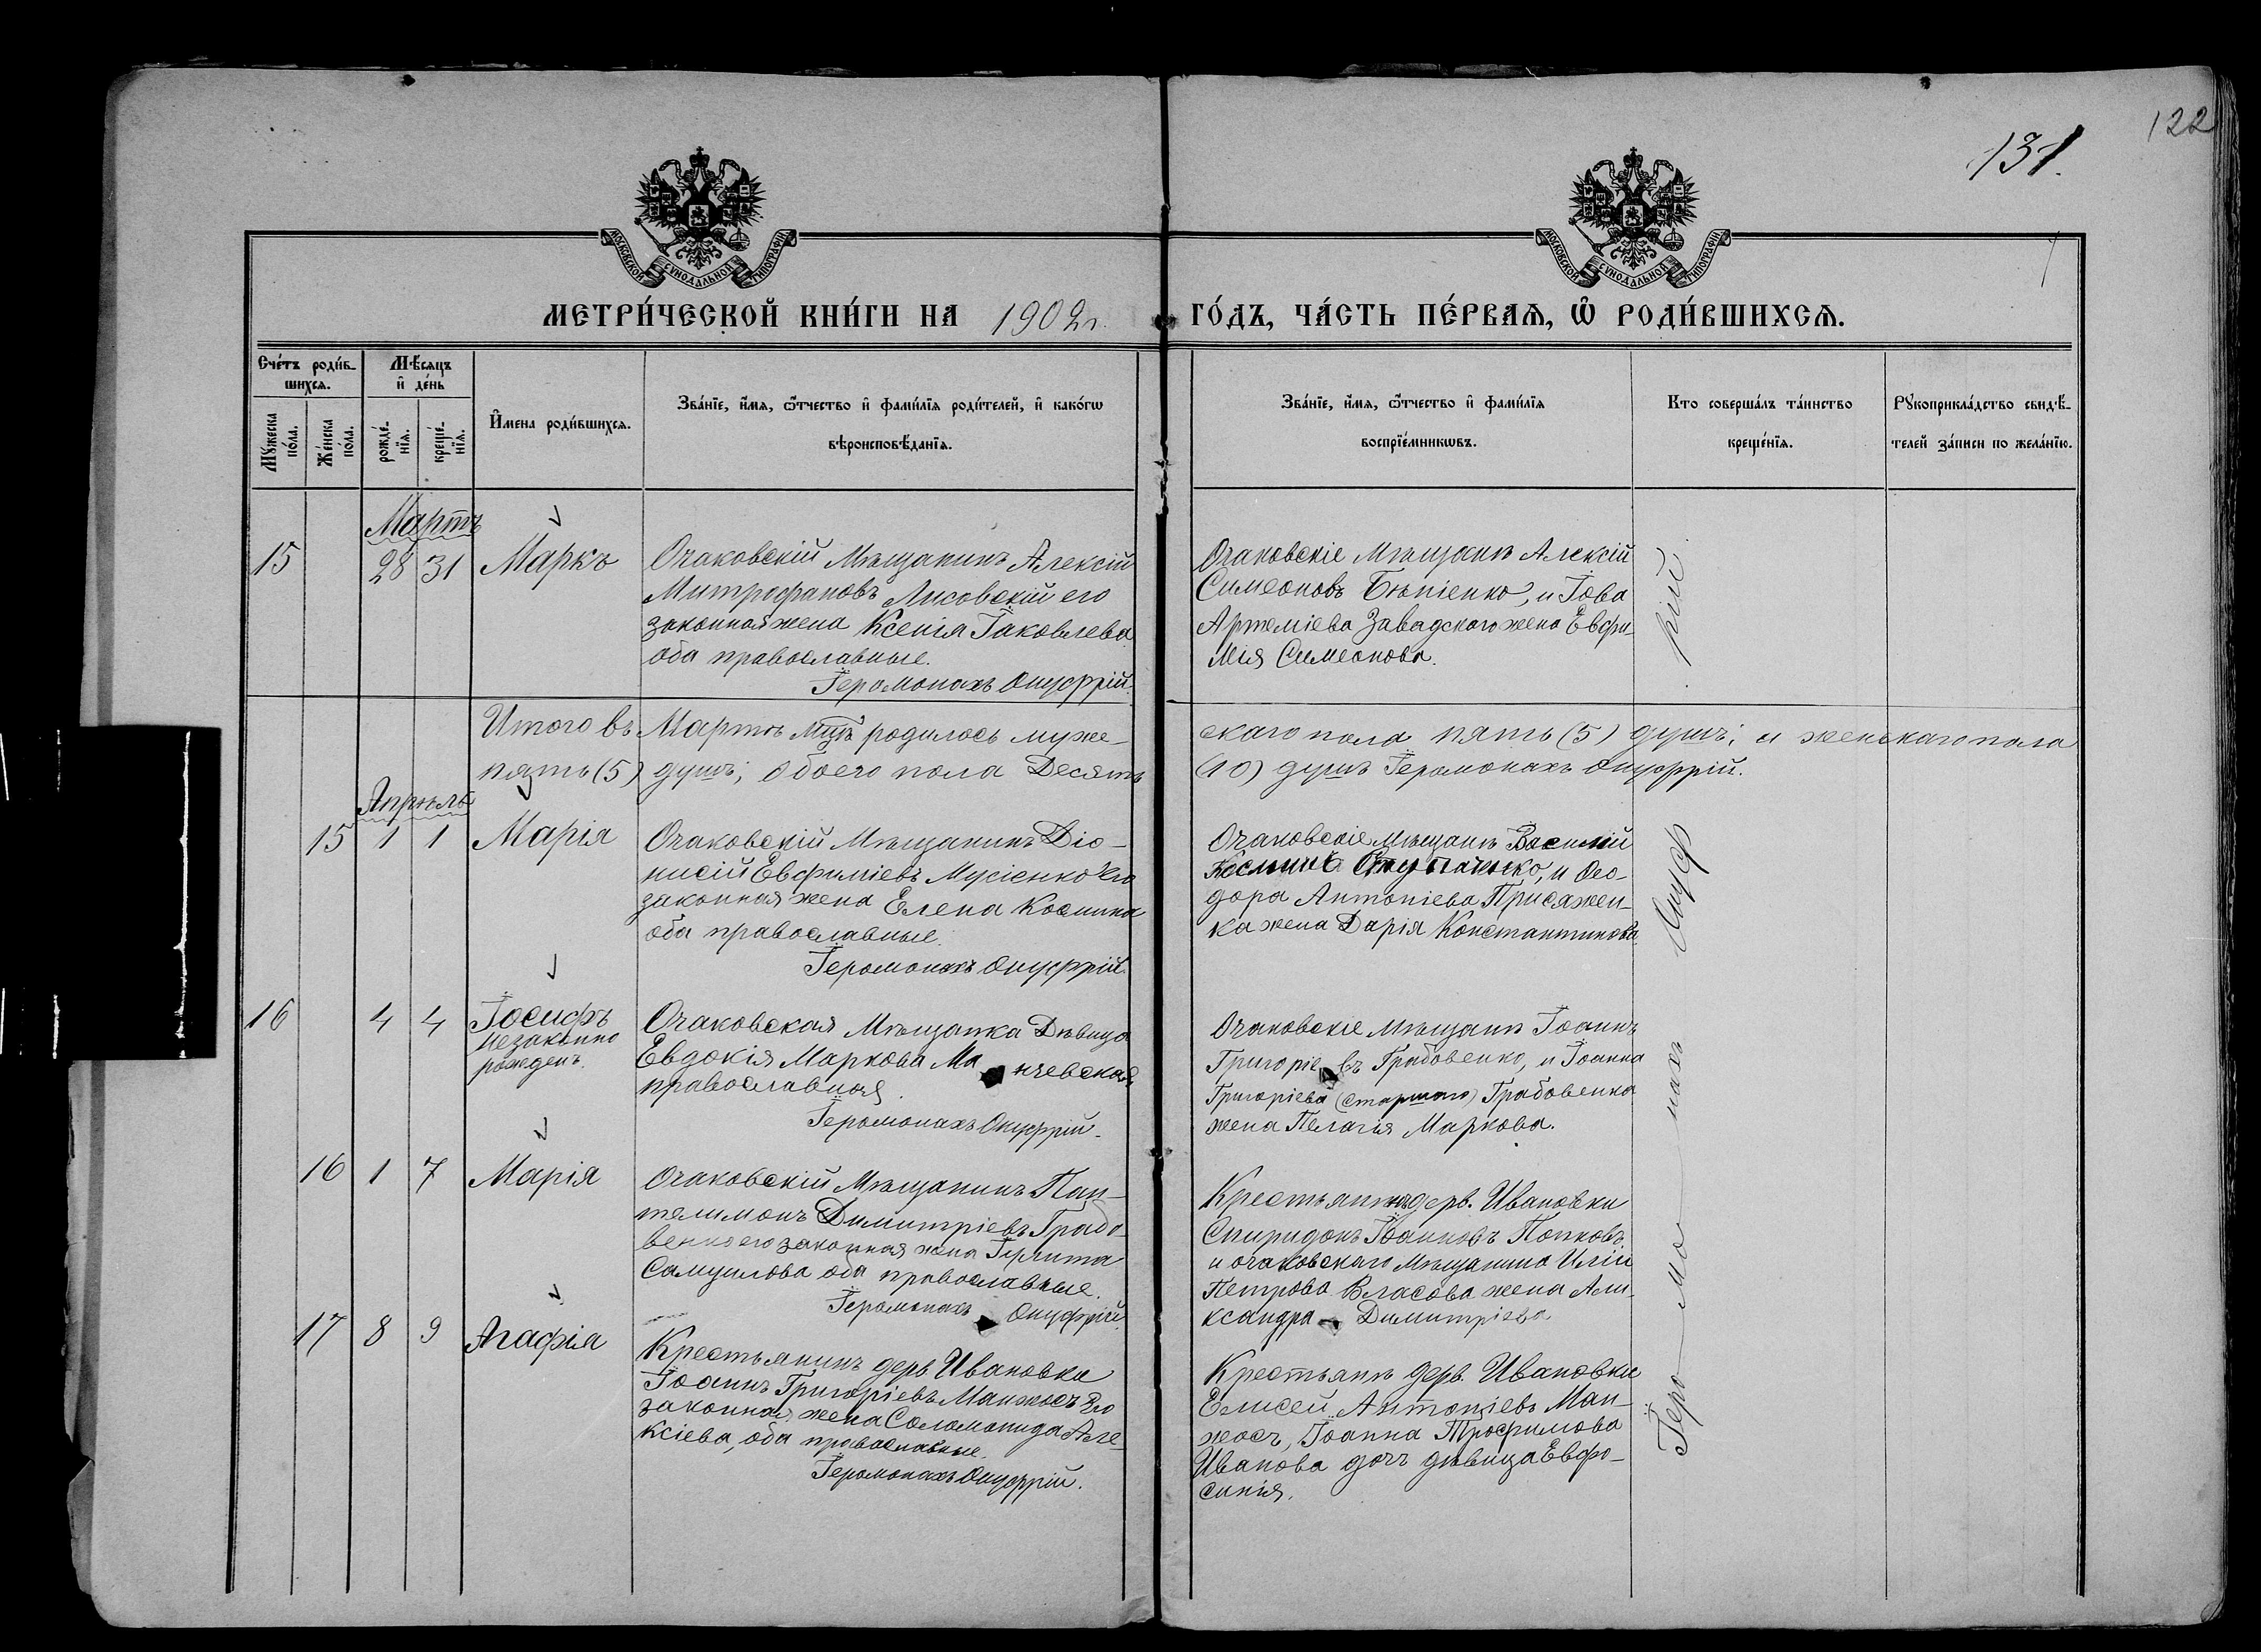 122
131.
МОСКОВСКОЙ СѴНОДАЛЬНОЙ ТИПОГРАФІИ
МОСКОВСКОЙ СѴНОДАЛЬНОЙ ТИПОГРАФІИ
МЕТРИ́ЧЕСКОЙ КНИ́ГИ НА 1902 г. ГО́ДЪ, ЧА́СТЬ ПЕ́РВАѦ, Ѡ РОДИ́ВШИХСѦ.
Сче́тъ роди́в-
шихся.
Мꙋжеска по́ла.
Же́нска по́ла.
Мѣ́сяцъ
и҆ де́нь
рожде́-
нїѧ.
креще́-
нїѧ.
И҆мена роди́вшихся.
Зва́нїе, и҆́мѧ, ѻ҆́тчество и҆ фами́лїѧ роди́телей, и҆ како́гѡ
вѣроисповѣ́данїѧ.
Зва́нїе, и҆́мѧ, ѻ҆́тчество и҆ фами́лїѧ
воспрїе́мникѡвъ.
Кто соверша́лъ та́инство
креще́нїѧ.
Рꙋкоприкла́дство свидѣ́-
телей за́писи по жела́нїю.
Мартъ
15 28 31 Маркъ
Очаковскій Мѣщанинъ Алексій
Митрофановъ Лисовскій его
законная жена Ксенія Іаковлева
оба православные.
Іеромонахъ Онуфрій.
Очаковскіе Мѣщанѣ Алексій
Симеоновъ и Іова
Артеміева Завадскаго жена Евфи-
мія Симеонова.
Итого въ Мартѣ мцѣ родилось муже- скаго пола пять (5) душъ; и женскаго пола
пять (5) душъ; обоего пола Десять (10) душъ Іеромонахъ Онуфрій.
Апрѣль
15 1 1 Марія
Очаковскій Мѣщанинъ Діо-
нисій Евфиміевъ Мусіенко Его
законная жена Елена Космина
оба православные.
Іеромонахъ Онуфрій.
Очаковскіе мѣщанѣ Василій
Косминъ Ступаченко, и Ѳео-
дора Антоніева Присяжен-
ка жена Дарія Константинова
16 4 4 Іосифъ
незаконно
рожденъ.
Очаковская Мѣщанка Дѣвица
Евдокія Маркова Ма нчевская
православная.
Іеромонахъ Онуфрій.
Очаковскіе мѣщанѣ Іоаннъ
Григоріе въ Грабовенко, и Іоанна
Григоріева (старшаго) Грабовенка
жена Пелагія Маркова.
16 1 7 Марія
Очаковскій Мѣщанинъ Пан-
телимонъ Димитріевъ Грабо-
венко его законная жена
Самуилова оба православные.
Іеромонахъ Онуфрій.
дерв. Ивановки
Спиридонъ Іоанновъ Попковъ,
и очаковскаго Мѣщанина Иліи
Петрова Власова жена Але-
ксандра Димитріева
17 8 9 Агафія
Крестьянинъ дерв Ивановки
Іоаннъ Григоріевъ Манжосъ Его
законная жена Соломонида Але-
ксіева, оба православные.
Іеромонахъ Онуфрій.
Крестьянѣ дерв. Ивановки
Елисей Антоніевъ Ман-
жосъ, Іоанна Трофимова
Иванова доч дѣвица Евфро-
синія.
Іеро — мо — нахъ Онуф рій.